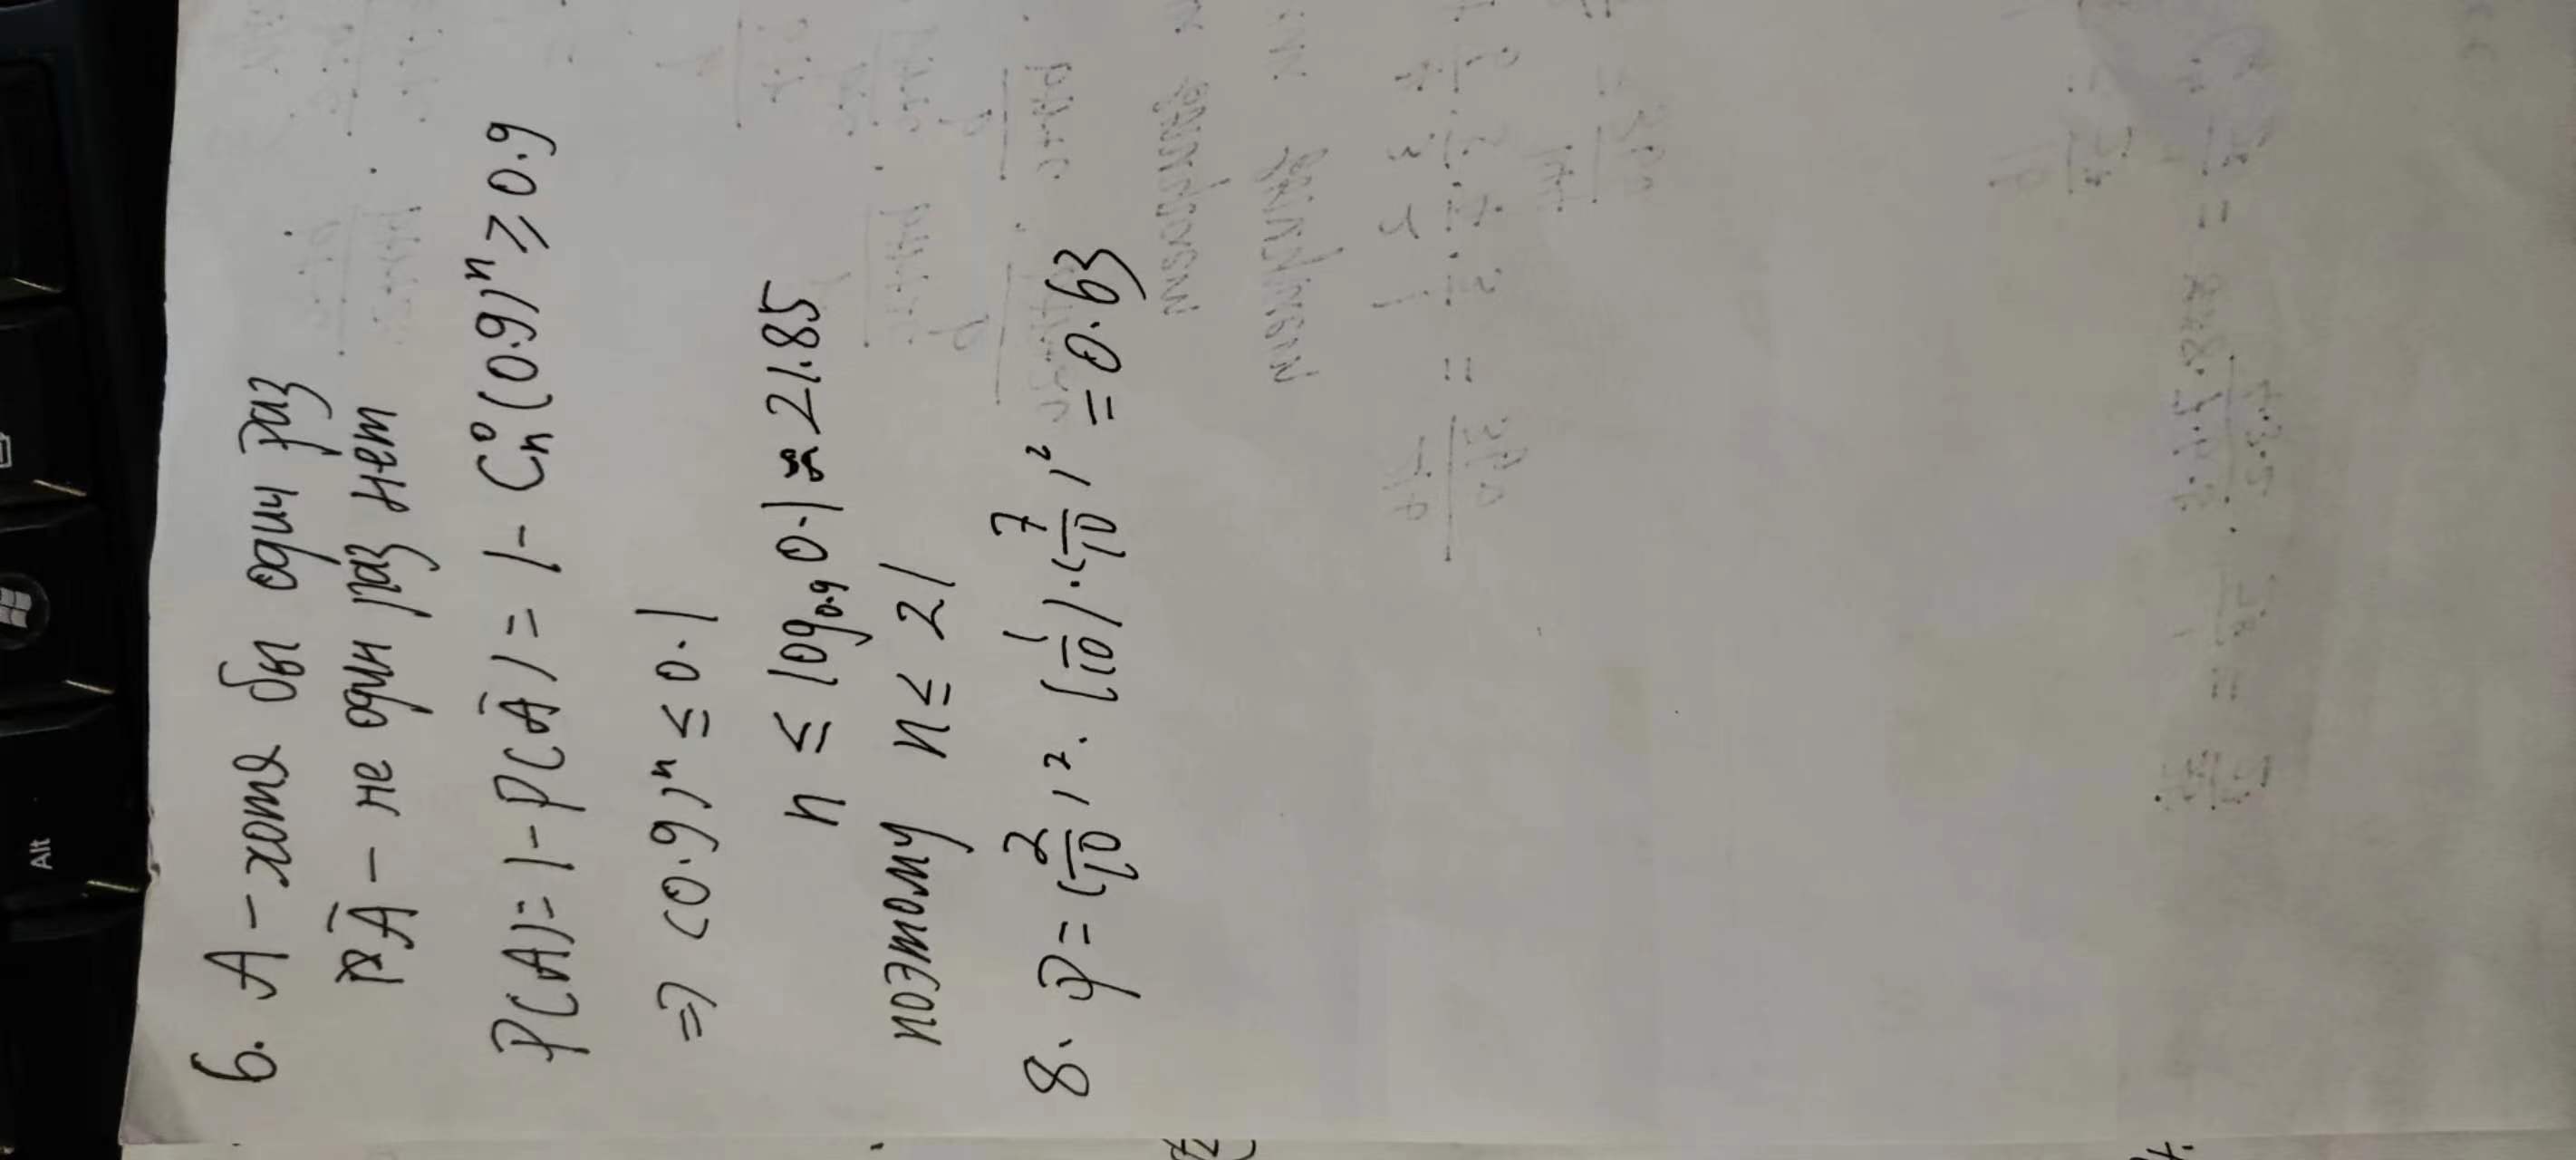 Alt
6. A – хотя бы один раз
Ā – не один раз нет
P(A) = 1 - P(Ā) = 1 - C_n^0 (0.9)^n ≥ 0.9
⇒ (0.9)^n ≤ 0.1
n ≤ log_{0.9} 0.1 ≈ 21.85
поэтому n ≤ 21
8. P = (2/10)^2 · (1/10) · (7/10)^2 = 0.63